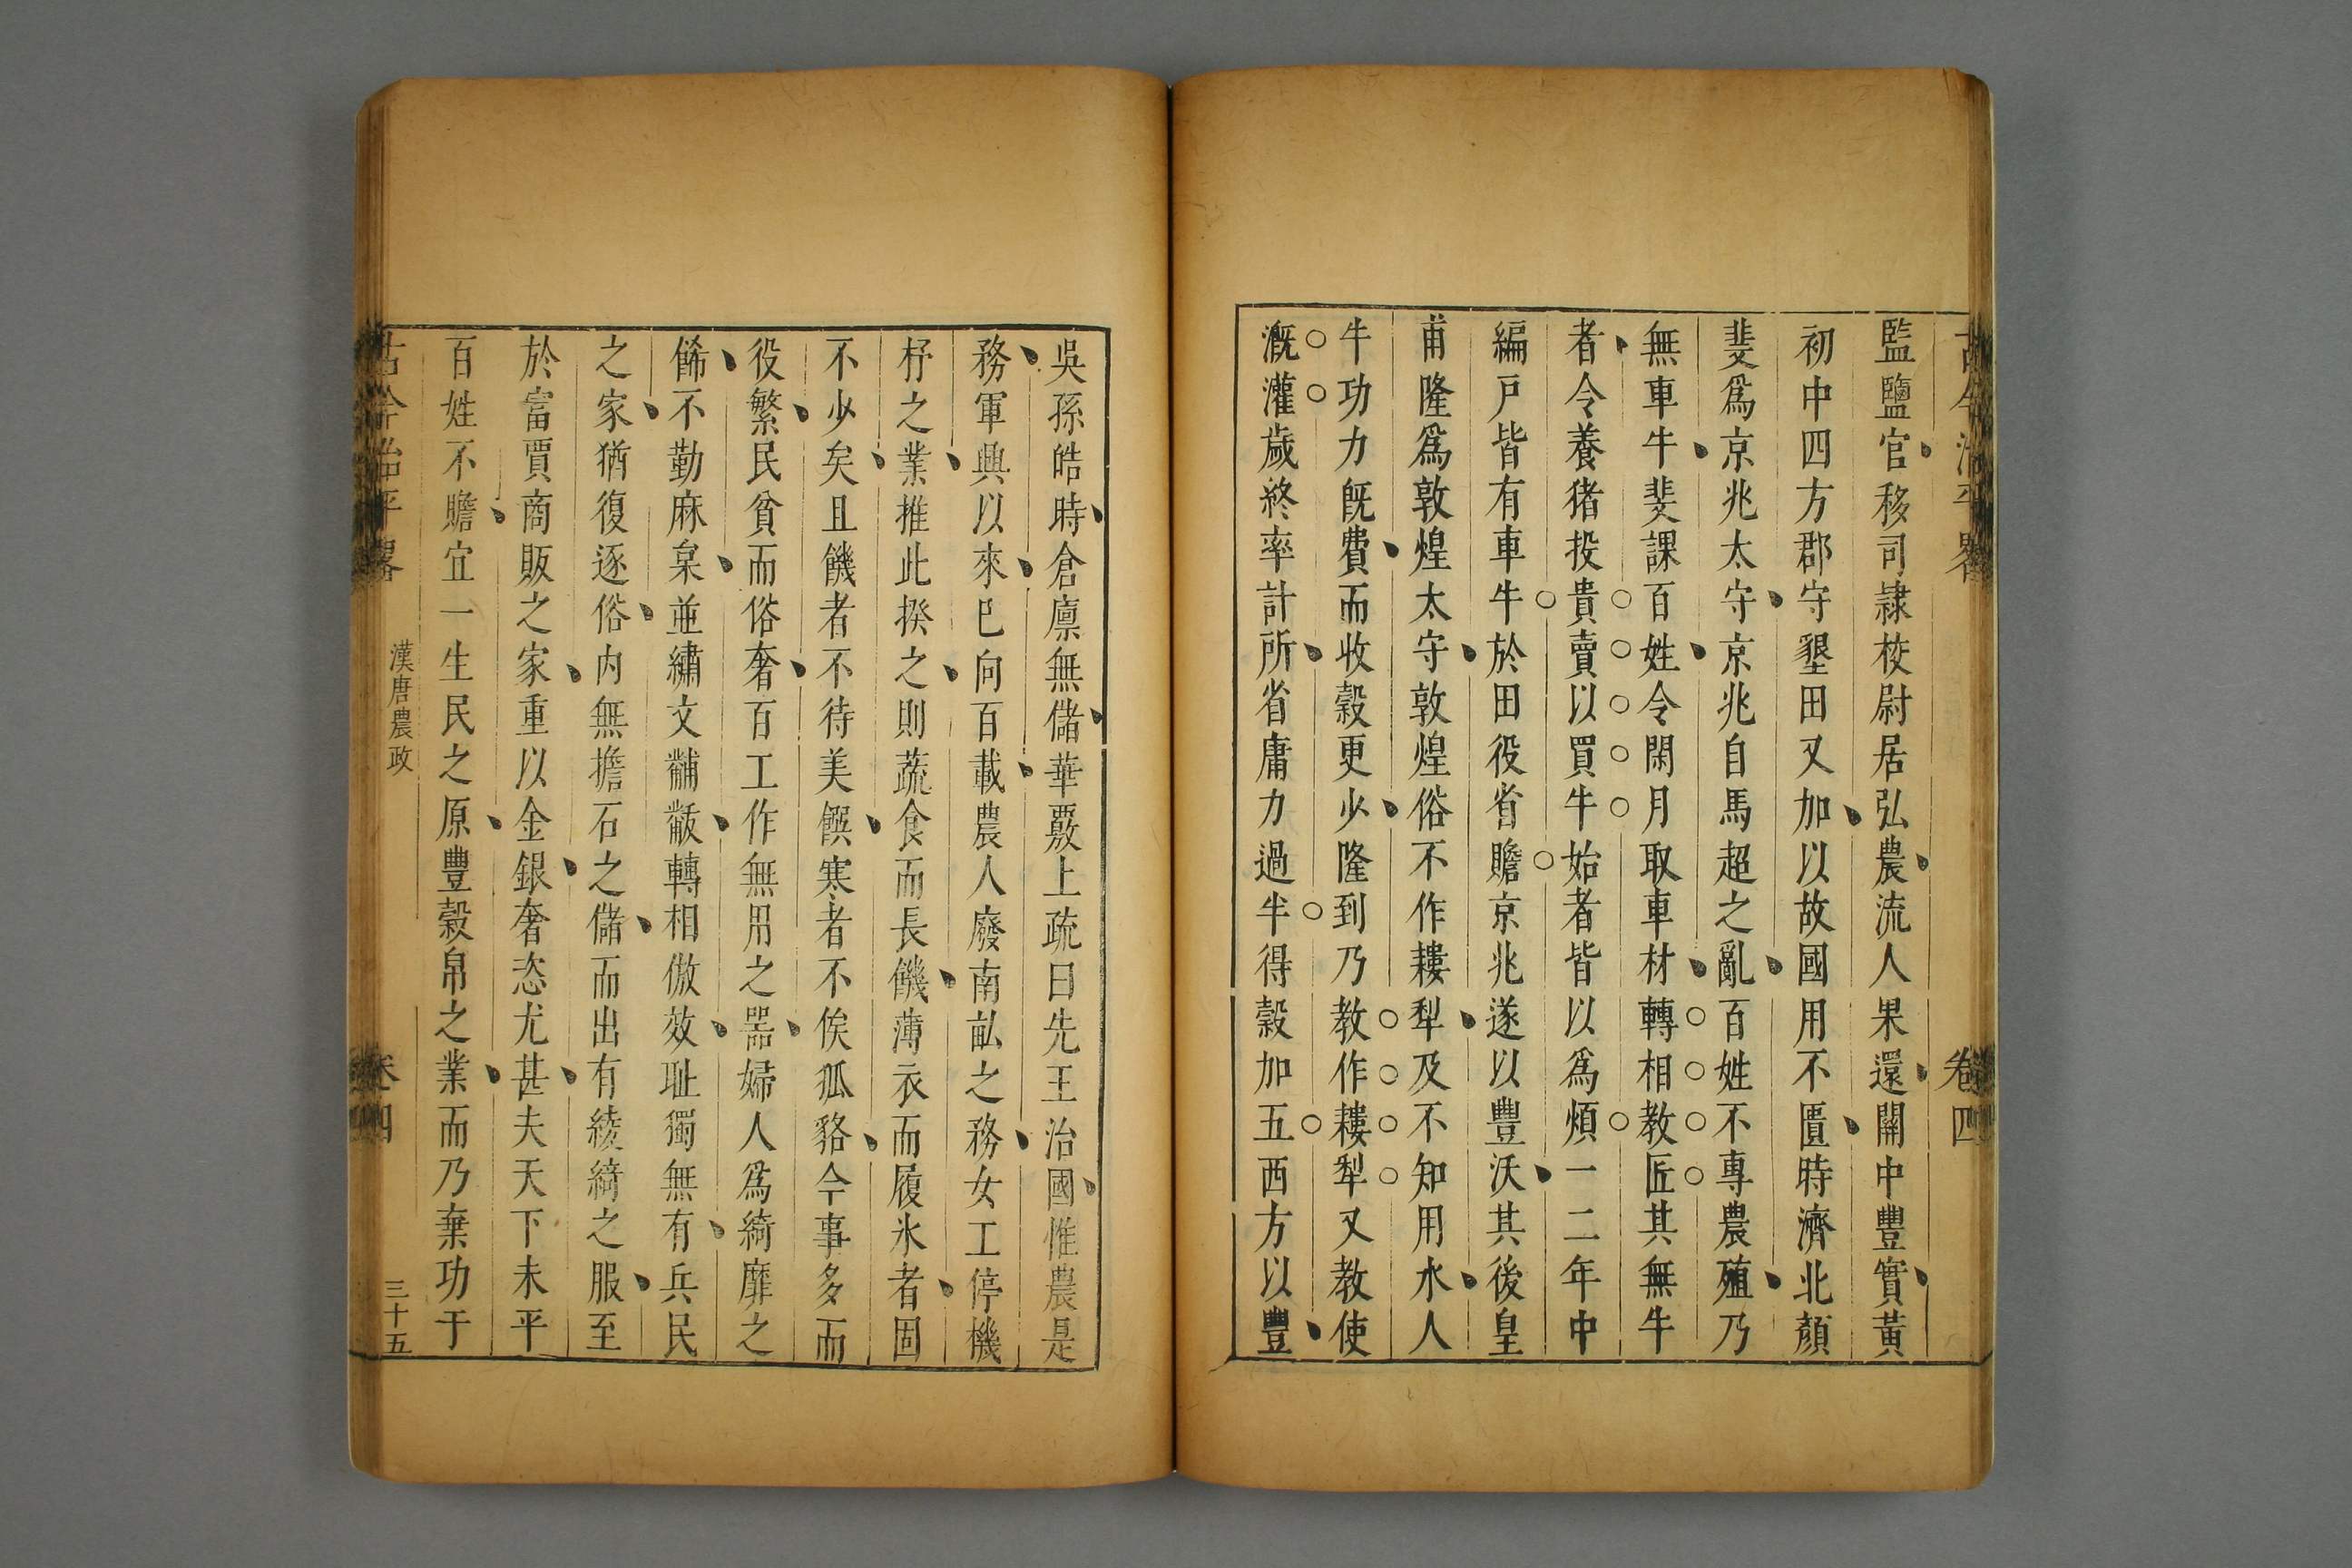 古今治平畧 卷四
監鹽官移司隷校尉居弘農流人果還關中豐實黃
初中四方郡守墾田又加以故國用不匱時濟北顏
斐爲京兆太守京兆自馬超之亂百姓不專農殖乃
無車牛斐課百姓令閑月取車材轉相教匠其無牛
者令養猪投貴賣以買牛始者皆以爲煩一二年中
編戸皆有車牛於田役省贍京兆遂以豐沃其後皇
甫隆爲敦煌太守敦煌俗不作耬犁及不知用水人
牛功力旣費而收穀更少隆到乃教作耬犁又教使
溉灌歲終率計所省庸力過半得穀加五西方以豐
吳孫皓時倉廪無儲華覈上疏曰先王治國惟農是
務軍興以來已向百載農人廢南畝之務女工停機
杼之業推此揆之則蔬食而長饑薄衣而履氷者固
不少矣且饑者不待美饌寒者不俟狐貉今事多而
役繁民貧而俗奢百工作無用之器婦人爲綺靡之
餙不勤麻枲並繡文黼黻轉相倣效耻獨無有兵民
之家猶復逐俗内無擔石之儲而出有綾綺之服至
於富賈商販之家重以金銀奢恣尤甚夫天下未平
百姓不贍宜一生民之原豐穀帛之業而乃棄功于
古今治平畧 漢唐農政 卷四 三十五